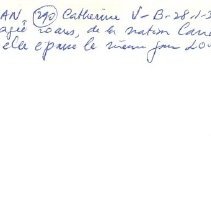 AN, 290 Catherine V - B - 28-1-2
agée 20 ans, de la nation
elle épouse le même jour